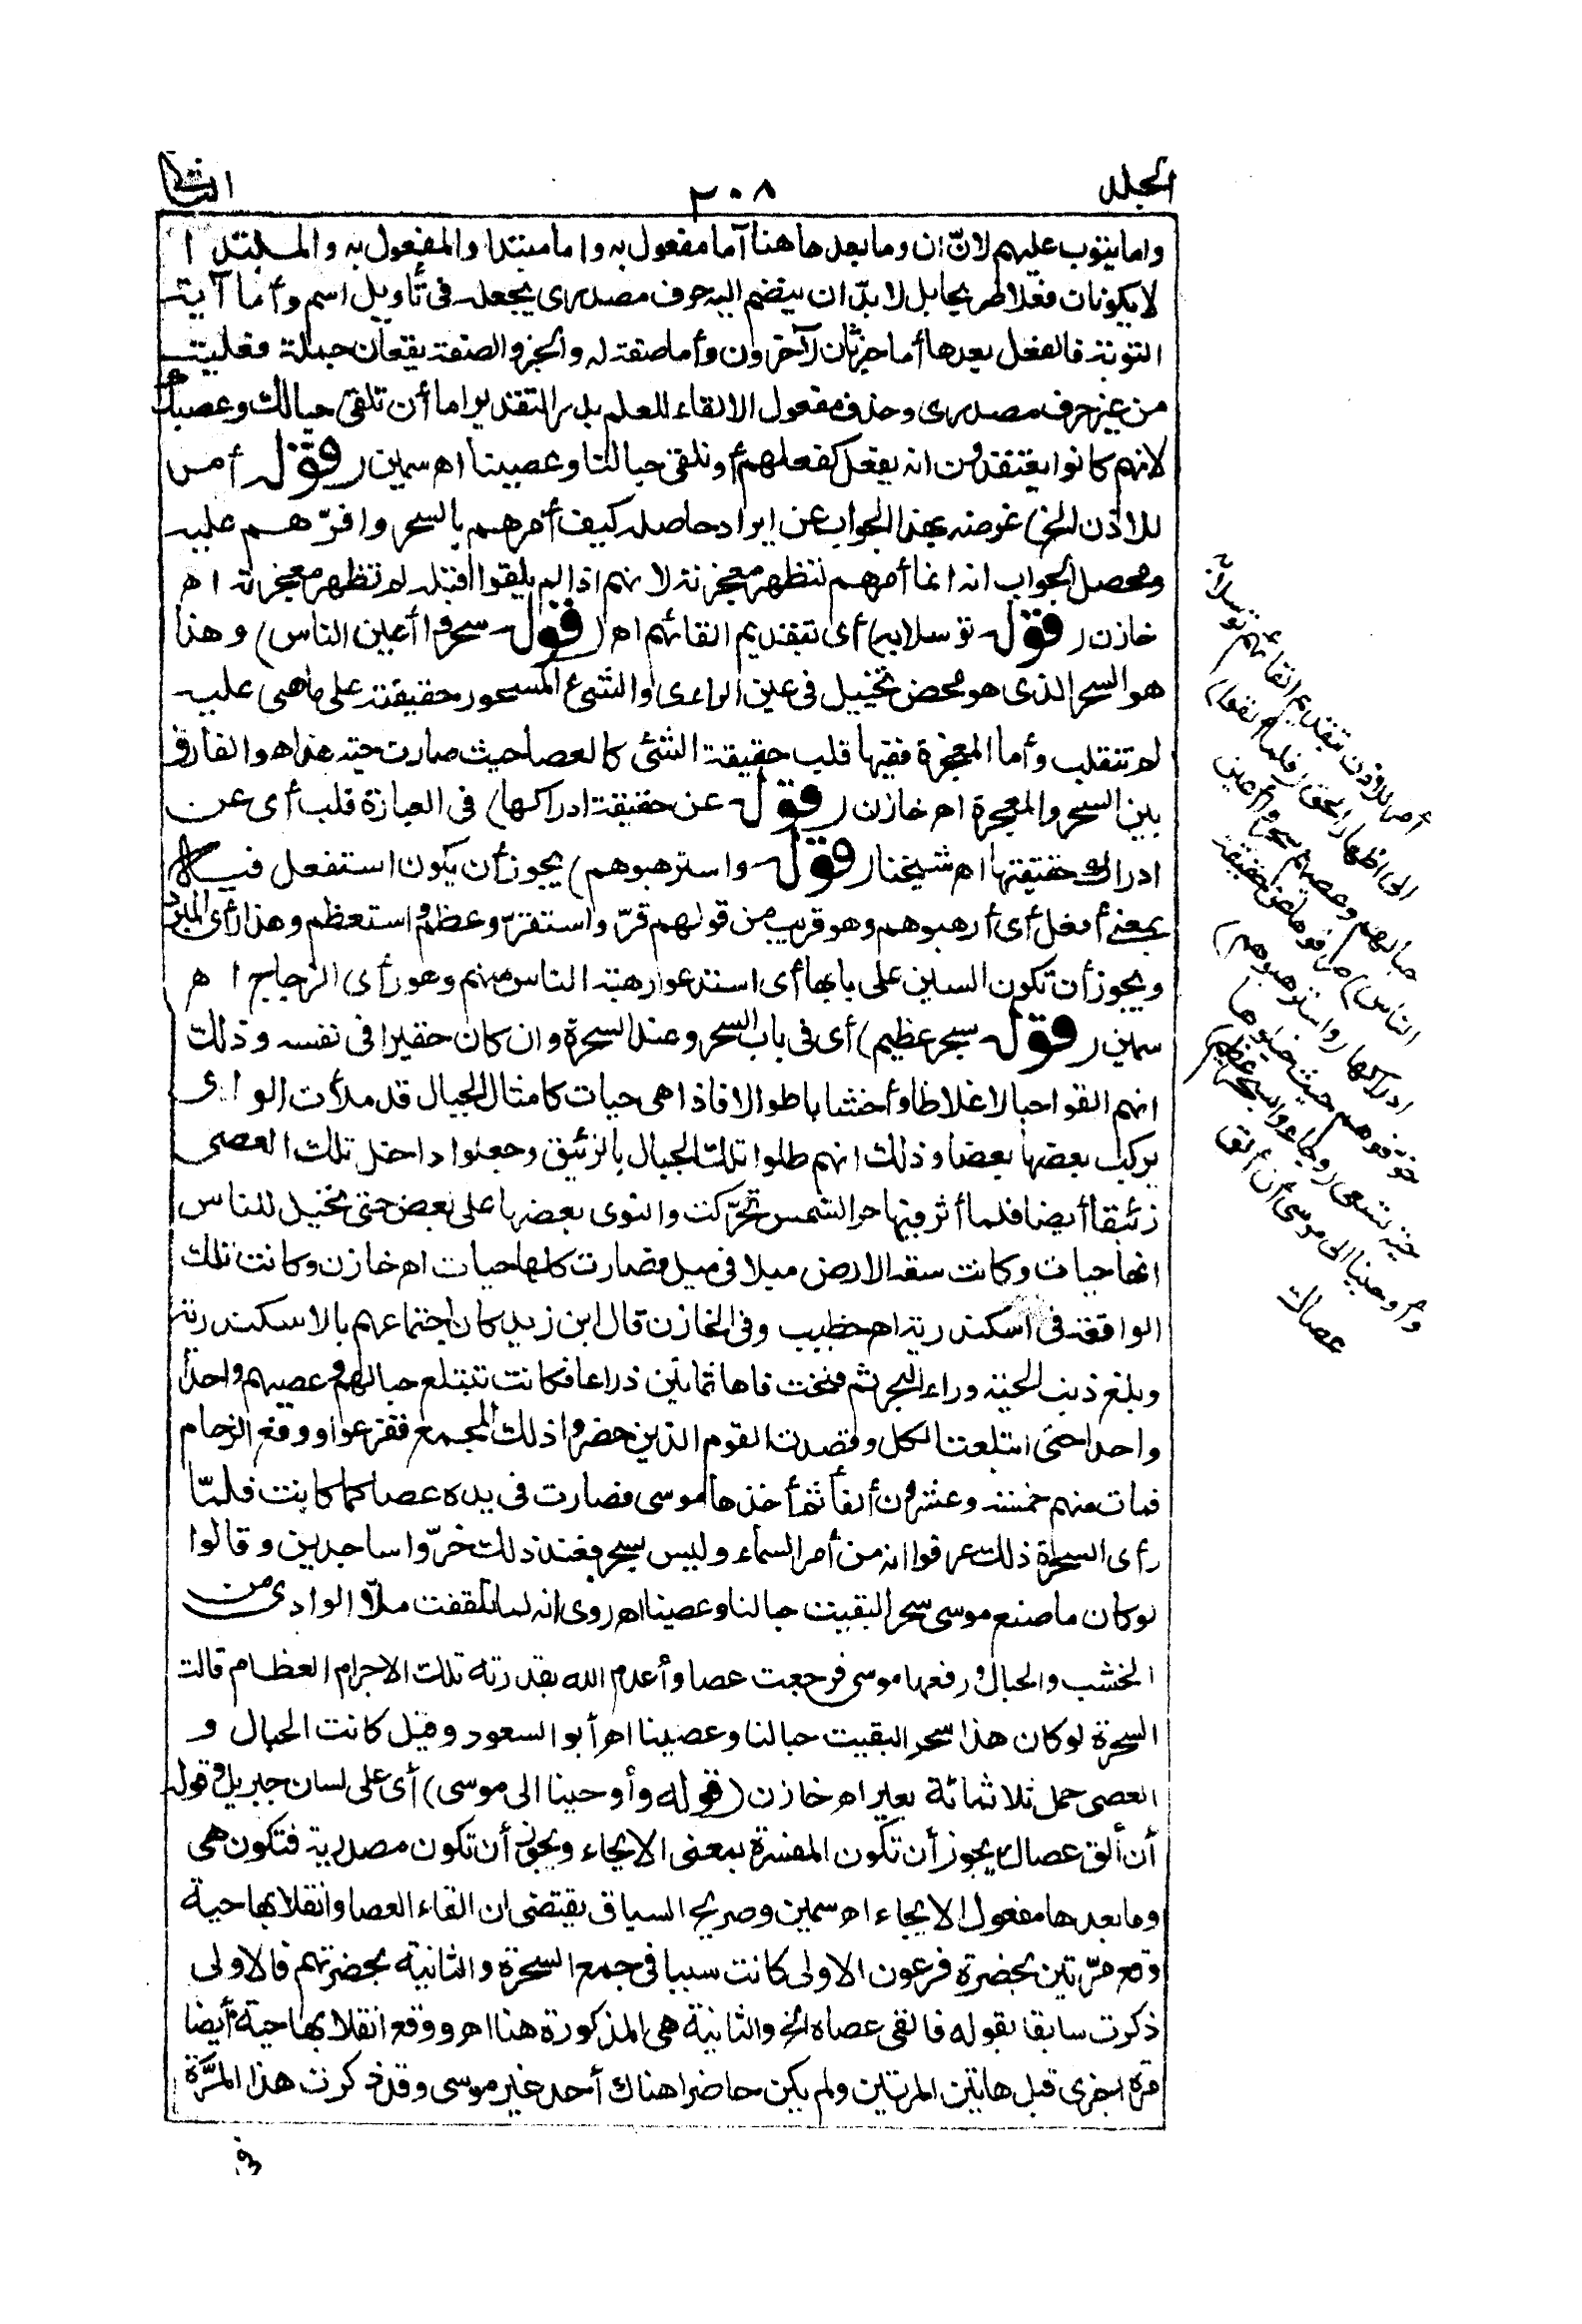 الجلد
٢٠٨
الثانى
واما يتوب عليهم لانّ ان وما بعدها هنا اما مفعول به واما مبتدا والمفعول به والمبتدا
لا يكونان فعلا صريحا بل لا بدّ ان ينضم اليه حرف مصدرى يجعله فى تأويل اسم وأما آية
التوبة فالفعل بعدها أما خبر ثان لآخرون وأما صفة له والخبر والصفة يقعان جملة فعلية
من غير حرف مصدرى وحذف مفعول الالقاء للعلم به والتقدير اما أن تلقى حبالك وعصيك
لانهم كانوا يعتقدون انه يفعل كفعلهم أو نلقى حبالنا وعصينا اه سمين (قوله أمر
للاذن الخ) غرضه بهذا الجواب عن ايراد حاصله كيف أمرهم بالسحر واقرّهم عليه
ومحصل الجواب انه انما أمرهم لتظهر معجزته لانهم اذا لم يلقوا قبله لم تظهر معجزته اه
خازن (قوله توسلا به) أى بتقديم القائهم اه (قوله سحروا أعين الناس) وهذا
هو السحر الذى هو محض تخييل فى عين الرائى والشئ المسحور حقيقته على ما هى عليه
لم تنقلب وأما المعجزة ففيها قلب حقيقة الشئ كالعصا حيث صارت حية هذا هو الفارق
بين السحر والمعجزة اه خازن (قوله عن حقيقة ادراكها) فى العبارة قلب أى عن
ادراك حقيقتها اه شيخنا (قوله واسترهبوهم) يجوز أن يكون استفعل فيه
بمعنى أفعل أى أرهبوهم وهو قريب من قولهم قرّ واستقرّ وعظم واستعظم وهذا رأى المبرد
ويجوز أن تكون السين على بابها أى استدعوا رهبة الناس منهم وهو رأى الزجاج اه
سمين (قوله بسحر عظيم) أى فى باب السحر وعند السحرة وان كان حقيرا فى نفسه وذلك
انهم القوا حبالا غلاظا وأخشابا طوالا فاذا هى حيات كامثال الجبال قد ملأت الوادى
يركب بعضها بعضا وذلك انهم طلوا تلك الحبال بالزئبق وجعلوا داخل تلك العصى
زئبقا أيضا فلما أثر فيها حر الشمس تحرّكت والتوى بعضها على بعض حتى تخيل للناس
انها حيات وكانت سعة الارض ميلا فى ميل فصارت كلها حيات اه خازن وكانت تلك
الواقعة فى اسكندرية اه خطيب وفى الخازن قال ابن زيد كان اجتماعهم بالاسكندرية
وبلغ ذنب الحية وراء البحر ثم فتحت فاها ثمانين ذراعا فكانت تبتلع حبالهم وعصيهم واحدا
واحدا حتى ابتلعت الكل وقصدت القوم الذين حضروا ذلك المجمع ففزعوا ووقع الزحام
فمات منهم خمسة وعشرون ألفا ثم أخذها موسى فصارت فى يده عصا كما كانت فلمّا
رأى السحرة ذلك عرفوا انه من أمر السماء وليس بسحر فعند ذلك خرّوا ساجدين وقالوا
لو كان ما صنع موسى سحرا لبقيت حبالنا وعصينا اه روى انه لما تلقفت ملأ الوادى من
الخشب والحبال ورفعها موسى فرجعت عصا وأعدم الله بقدرته تلك الاجرام العظام قالت
السحرة لو كان هذا سحرا لبقيت حبالنا وعصينا اه أبو السعود وقيل كانت الحبال و
العصى حمل ثلاثمائة بعير اه خازن (قوله وأوحينا الى موسى) أى على لسان جبريل وقوله
أن ألق عصاك يجوز أن تكون المفسرة بمعنى الايحاء ويجوز أن تكون مصدرية فتكون هى
وما بعدها مفعول الايحاء اه سمين وصريح السياق يقتضى ان القاء العصا وانقلابها حية
وقع مرّتين بحضرة فرعون الاولى كانت سببا فى جمع السحرة والثانية بحضرتهم فالاولى
ذكرت سابقا بقوله فالقى عصاه الخ والثانية هى المذكورة هنا اه ووقع انقلابها حية أيضا
مرة اخرى قبل هاتين المرتين ولم يكن حاضرا هناك أحد غير موسى وقد ذكرت هذا المرّة
فى
أمر للاذن بتقديم القائهم توسلا به
الى اظهار الحق (فلما ألقوا)
حبالهم وعصيهم (سحروا أعين
الناس) صرفوها عن حقيقة
ادراكها (واسترهبوهم)
خوّفوهم حيث خيلوها
حية تسعى (وجاءوا بسحر عظيم)
وأوحينا الى موسى أن ألق
عصاك